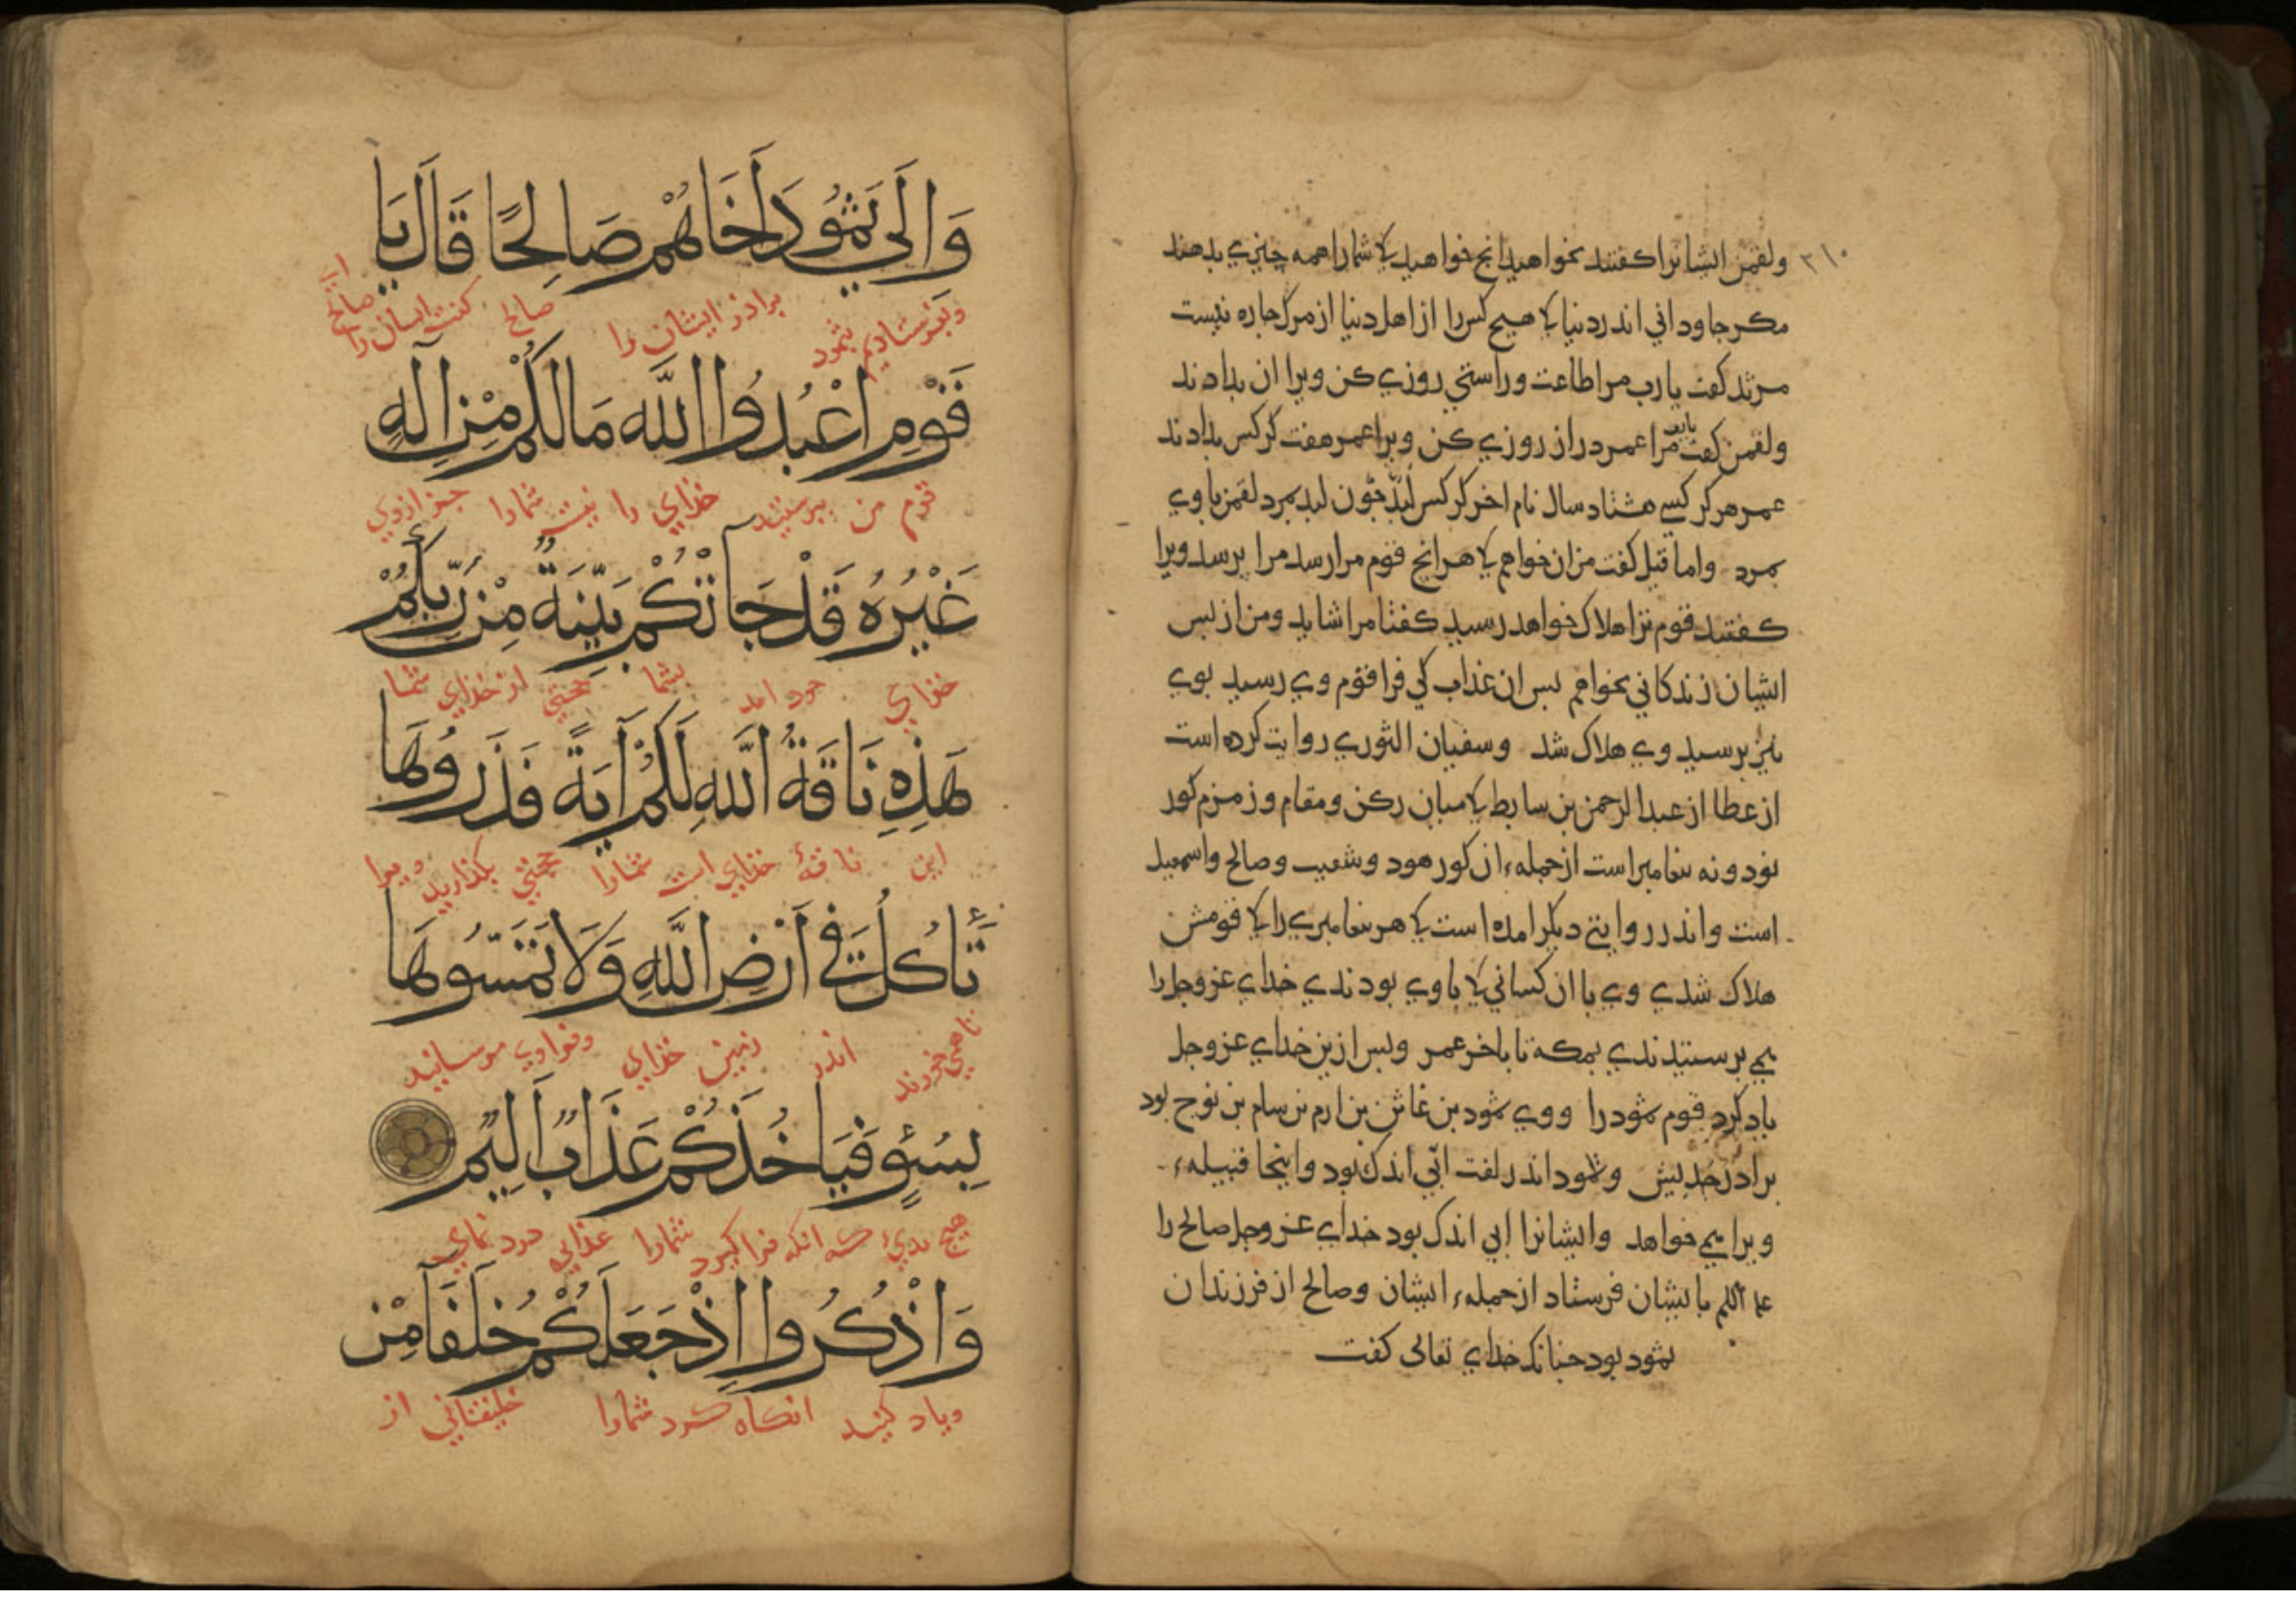 ٣١٠
ولقمن ایشانرا کفتند بخواهید انج خواهید کا شمارا همه چیزی بدهند
مکر جاودانی اندر دنیا کا هیچ کس را از اهل دنیا از مرک جاره نیست
مرثد کفت یا رب مرا طاعت وراستی روزی کن ویرا ان بدادند
ولقمن کفت یا رب مرا عمر دراز روزی کن ویرا عمر هفت کرکس بدادند
عمر هر کرکسی هشتاد سال نام اخر کرکس لبد جون لبد بمرد لقمن با وی
بمرد واما قیل کفت من ان خواهم کا هر انج قوم مرا رسد مرا برسد ویرا
کفتند قوم ترا هلاک خواهد رسید کفتا مرا شاید ومن از بس
ایشان زندکانی نخواهم بس ان عذاب کی فرا قوم وی رسید بوی
نیز برسید وی هلاک شد وسفیان الثوری روایت کرده است
از عطا از عبدالرحمن بن سابط کا میان رکن ومقام وزمزم کور
نود ونه بیغامبر است از جمله ان کور هود وشعیب وصالح واسمعیل
است واندر روایتی دیکر امده است کا هر بیغامبری را کا قومش
هلاک شدی وی با ان کسانی کا با وی بودندی خدای عزوجل را
می برستیدندی بمکه تا باخر عمر وبس ازین خدای عزوجل
یاد کرد قوم ثمود را ووی ثمود بن غاثر بن ارم بن سام بن نوح بود
برادر جدیس وثمود اندر لغت ابی اندک بود واینجا قبیله
ویرا می خواهد وایشانرا ابی اندک بود خدای عزوجل صالح را
علیه السلم بایشان فرستاد از جمله ایشان وصالح از فرزندان
ثمود بود جنانک خدای تعالی کفت
وَاِلَى ثَمُودَ اَخَاهُمْ صَالِحًا قَالَ يَا
وبفرستادیم بثمود برادر ایشان را صالح کفت ایشان را صالح ای
قَوْمِ اعْبُدُوا اللَّهَ مَا لَكُمْ مِنْ اِلَهٍ
قوم من ببرستید خذای را نیست شمارا جز از وی
غَيْرُهُ قَدْ جَاتْكُمْ بَيِّنَةٌ مِنْ رَبِّكُمْ
خذای امد بشما حجتی از خذای شما
هَذِهِ نَاقَةُ اللَّهِ لَكُمْ آيَةً فَذَرُوهَا
این ناقهٔ خذای است شمارا حجتی بکذارید ویرا
تَأْكُلْ فِي اَرْضِ اللَّهِ وَلَا تَمَسُّوهَا
تا همی خورند اندر زمین خذای وفرا وی مرسانید
بِسُوءٍ فَيَاخُذَكُمْ عَذَابٌ اَلِيمٌ
هیچ بدی که انکه فرا کیرد شمارا عذابی درد نمای
وَاذْكُرُوا اِذْ جَعَلَكُمْ خُلَفَا مِنْ
ویاد کنید انکاه کرد شمارا خلیفتانی از